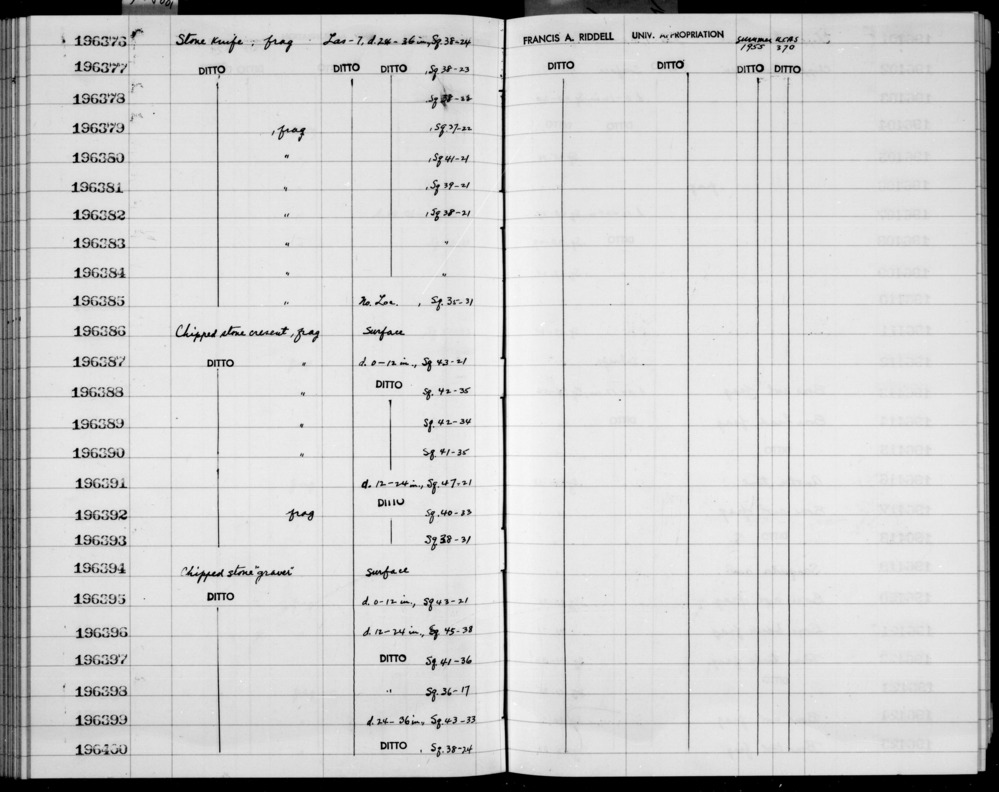 196376 Stone Knife, frag Las-7, d. 24-36 in., Sq. 38-24 FRANCIS A. RIDDELL UNIV. APPROPRIATION Summer 1955 UCAS 370
196377 DITTO DITTO DITTO , Sq 38-23 DITTO DITTO DITTO DITTO
196378 , Sq 38-22
196379 , frag , Sq 37-22
196380 " , Sq 41-21
196381 " , Sq 39-21
196382 " , Sq 38-21
196383 " "
196384 " "
196385 " No. Loc. , Sq. 35-31
196386 Chipped stone crescent, frag Surface
196387 DITTO " d. 0-12 in., Sq 43-21
196388 " DITTO Sq. 42-35
196389 " Sq. 42-34
196390 " Sq. 41-35
196391 d. 12-24 in., Sq. 47-21
196392 frag DITTO Sq. 40-33
196393 Sq 38-31
196394 Chipped stone "graver" Surface
196395 DITTO d. 0-12 in., Sq 43-21
196396 d. 12-24 in., Sq. 45-38
196397 DITTO Sq 41-36
196398 " Sq. 36-17
196399 d. 24-36 in., Sq. 43-33
196400 DITTO , Sq. 38-24